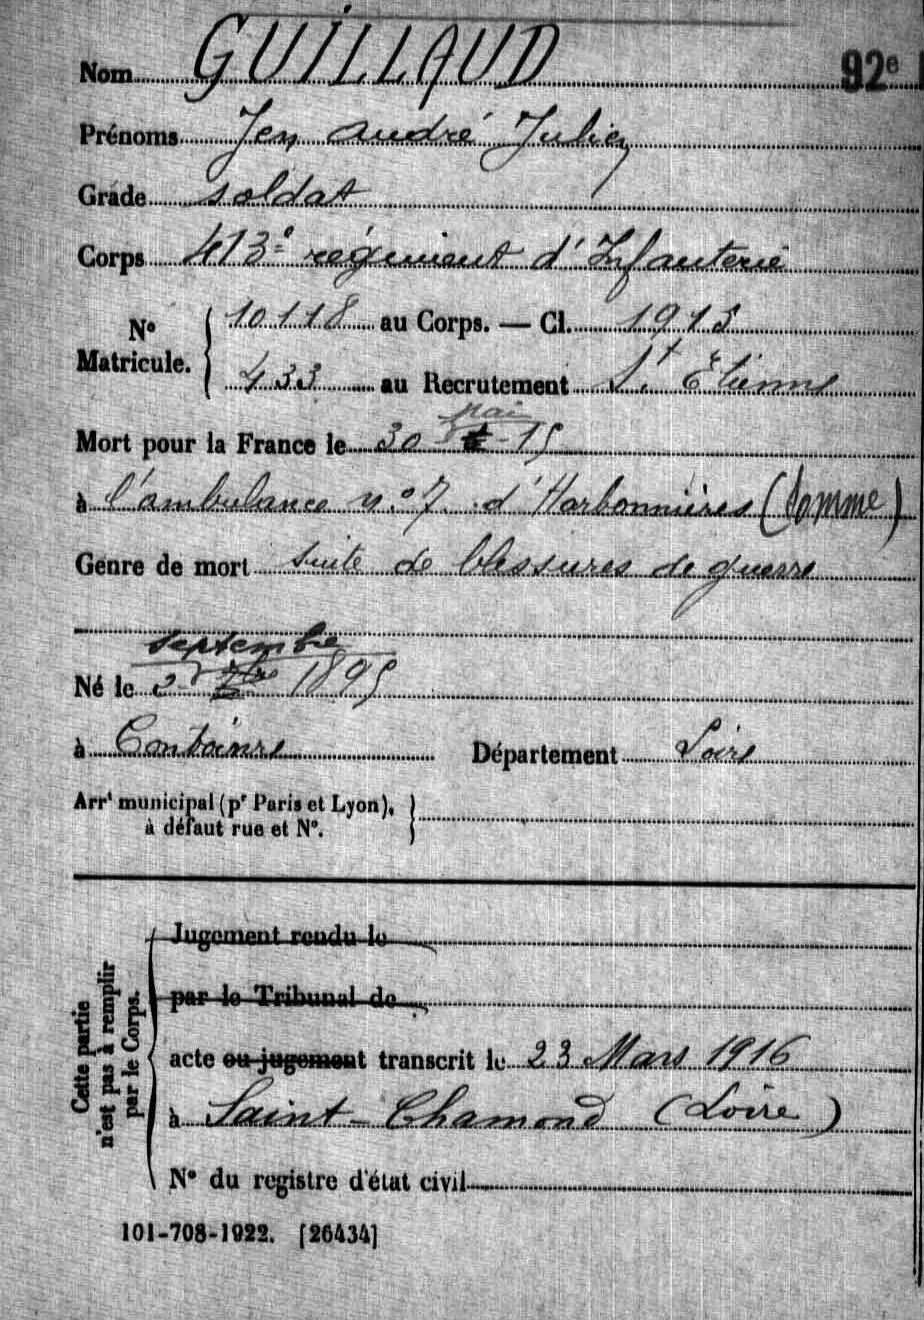 Nom GUILLAUD 92e
Prénoms Jen André Julien
Grade soldat
Corps 413e régiment d'Infanterie
No Matricule. { 10118 au Corps. — Cl. 1915
433 au Recrutement St Etienne
mai
Mort pour la France le 30 - 15
à l'ambulance no 7 d'Harbonnières (Somme)
Genre de mort suite de blessures de guerre
septembre
Né le 2 7bre 1895
à Département Loire
Arrt municipal (pr Paris et Lyon),
à défaut rue et No.
Cette partie
n'est pas à remplir
par le Corps.
Jugement rendu le
par le Tribunal de
acte ou jugement transcrit le 23 Mars 1916
à Saint-Chamond (Loire)
No du registre d'état civil
101-708-1922. [26434]